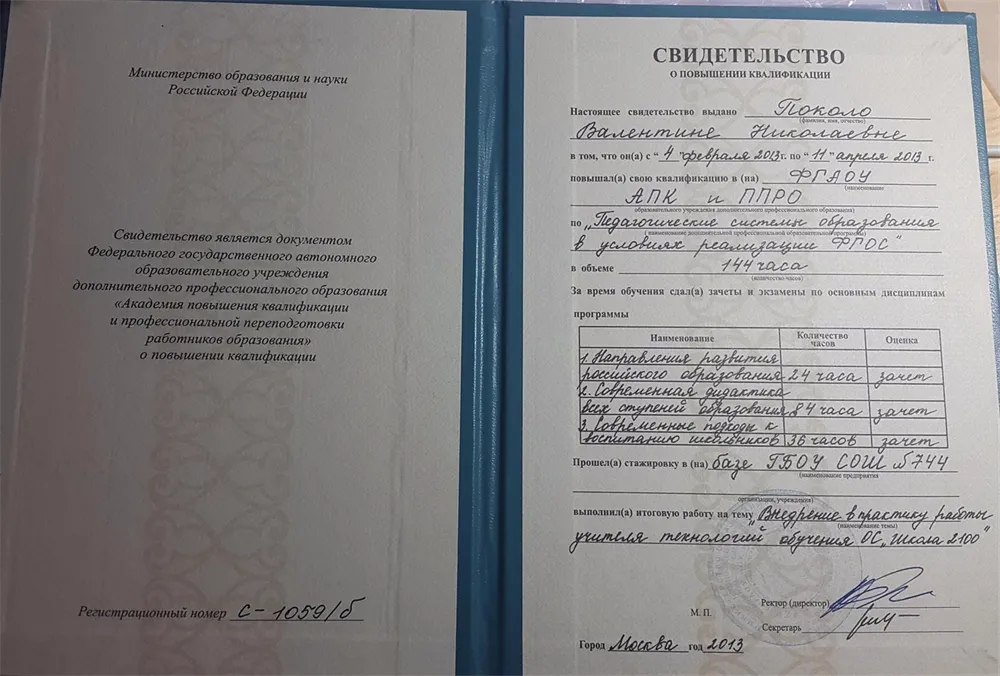 Министерство образования и науки
Российской Федерации
Свидетельство является документом
Федерального государственного автономного
образовательного учреждения
дополнительного профессионального образования
«Академия повышения квалификации
и профессиональной переподготовки
работников образования»
о повышении квалификации
Регистрационный номер С-1059/б
СВИДЕТЕЛЬСТВО
О ПОВЫШЕНИИ КВАЛИФИКАЦИИ
Настоящее свидетельство выдано Поколо
(фамилия, имя, отчество)
Валентине Николаевне
в том, что он(а) с "4" февраля 2013г. по "11" апреля 2013 г.
повышал(а) свою квалификацию в (на) ФГАОУ
(наименование
АПК и ППРО
образовательного учреждения дополнительного профессионального образования)
по „Педагогические системы образования
(наименование дополнительной профессиональной образовательной программы)
в условиях реализации ФГОС"
в объеме 144 часа
(количество часов)
За время обучения сдал(а) зачеты и экзамены по основным дисциплинам
программы
Наименование Количество часов Оценка
1. Направления развития
российского образования 24 часа зачет
2. Современная дидактика
всех ступеней образования 84 часа зачет
3. Современные подходы к
воспитанию школьников 36 часов зачет
Прошел(а) стажировку в (на) базе ГБОУ СОШ №744
(наименование предприятия
организации, учреждения)
выполнил(а) итоговую работу на тему „Внедрение в практику работы
(наименование темы)
учителя технологий обучения ОС „Школа 2100"
Ректор (директор)
М. П.
Секретарь
Город Москва год 2013